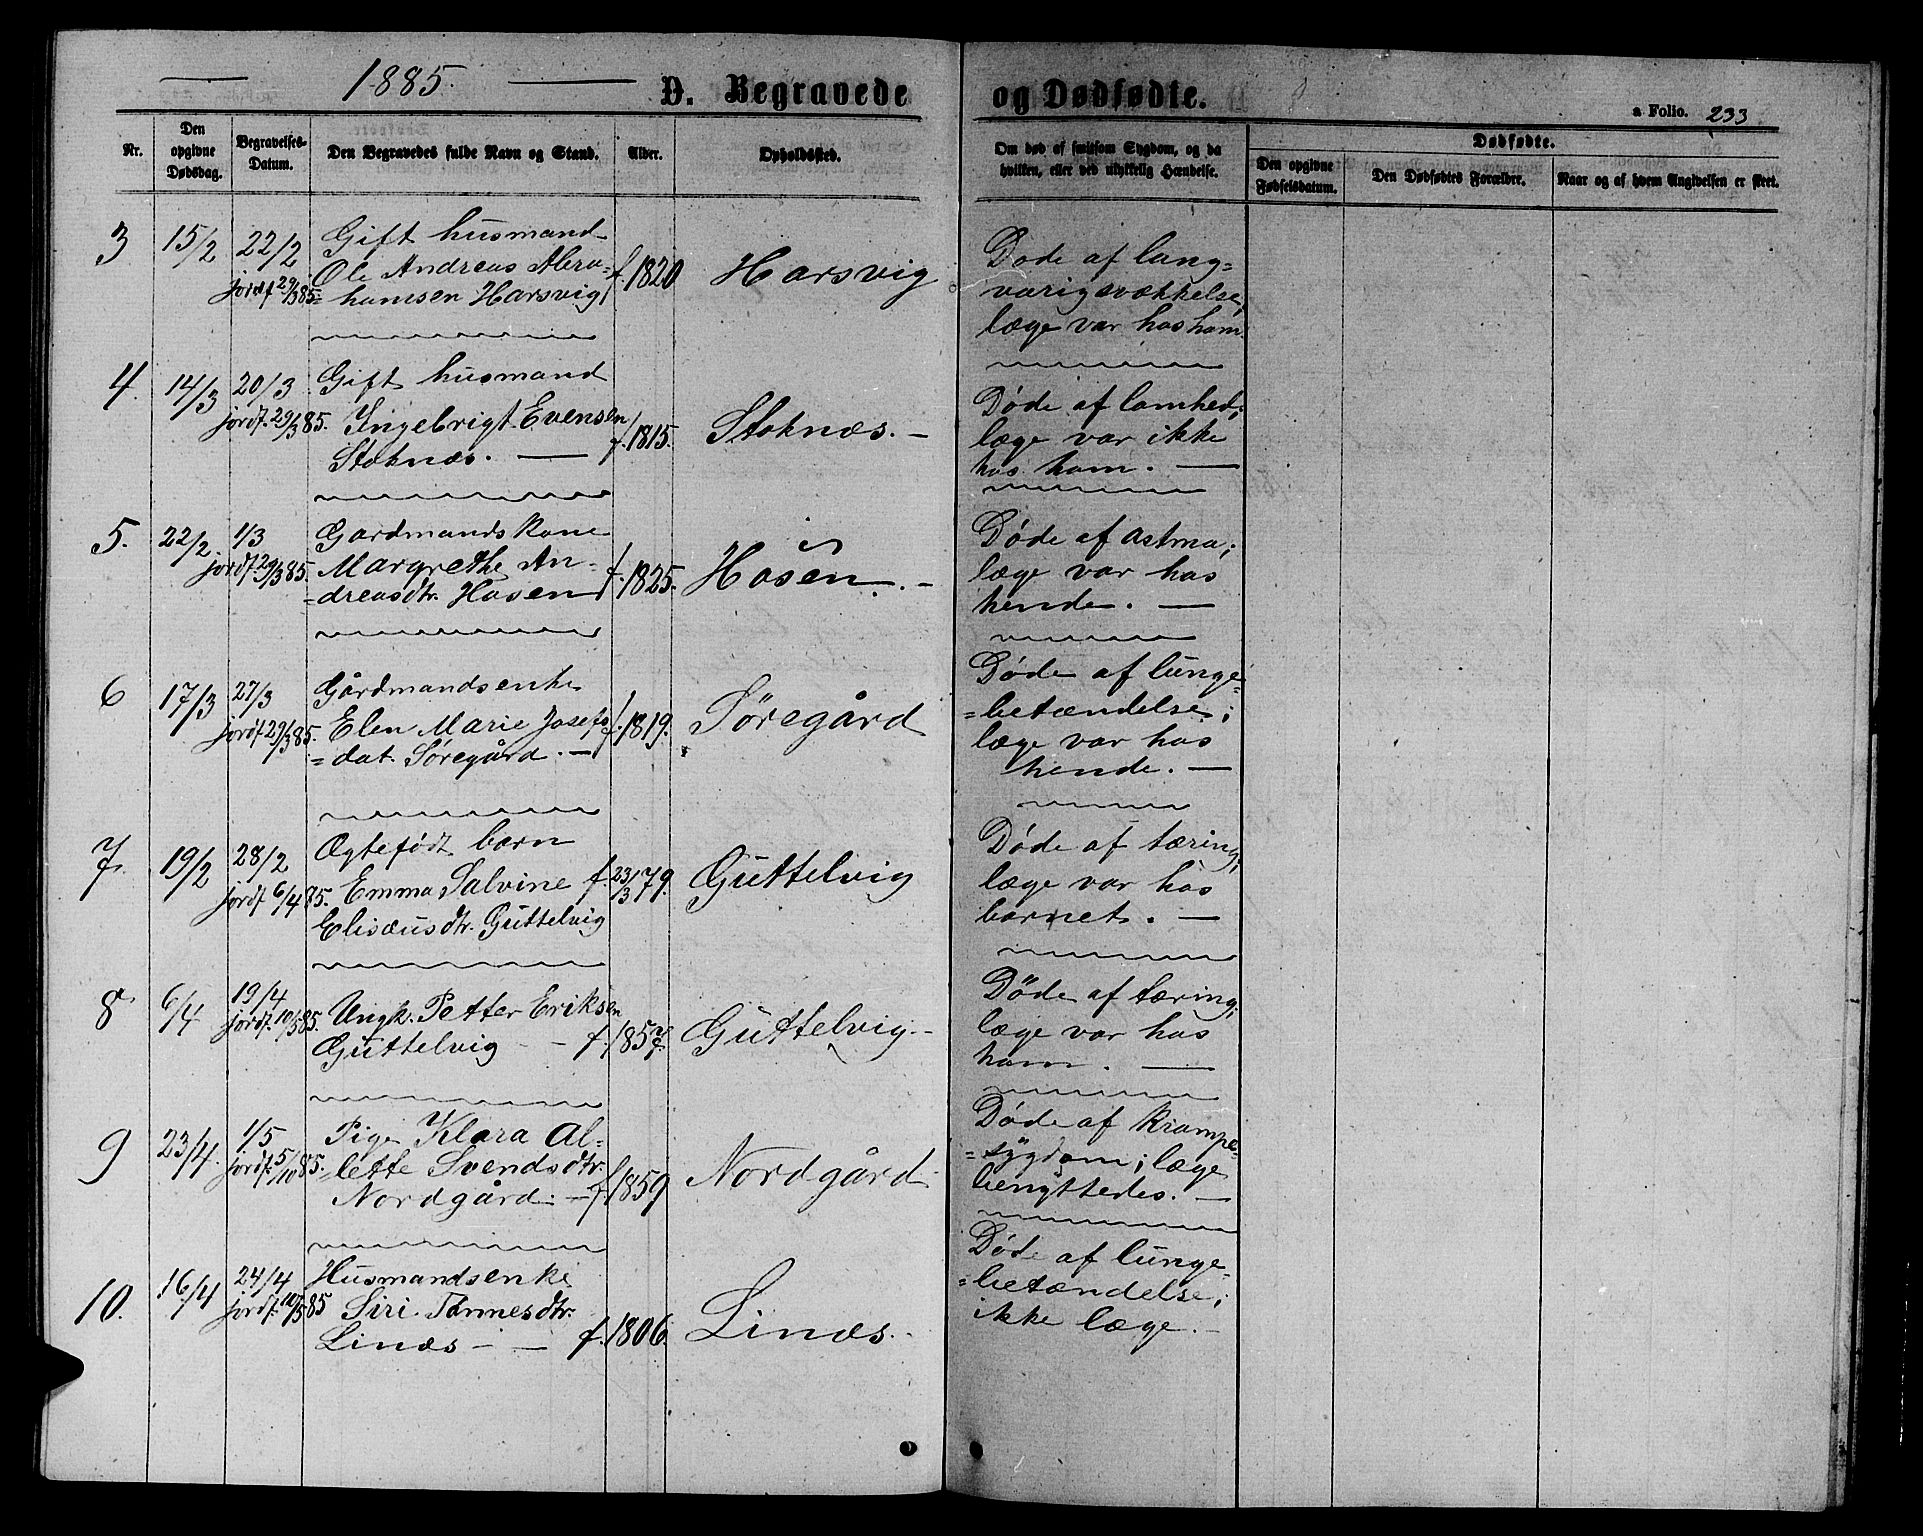 1885.
D. Begravede og Dødfødte.
a Folio. 233
Nr.
Den opgivne Dødsdag.
Begravelses-Datum.
Den Begravedes fulde Navn og Stand.
Alder.
Opholdssted.
Om død af smitsom Sygdom, og da
hvilken, eller ved ulykkelig Hændelse.
Dødfødte.
Den opgivne Fødselsdatum.
Den Dødfødtes Forældre.
Naar og af hvem Angivelsen er skeet.
3 15/2 22/2 jordf 29/3 85
Gift husmand
Ole Andreas Abra=
=hamsen Harsvig
f. 1820
Harsvig
Døde af lang=
varig svækkelse,
læge var hos ham.
4. 14/3 20/3 jordf. 29/3 85.
Gift husmand
Ingebrigt Evensen
Stoknæs. —
f. 1815.
Stoknæs. —
Døde af lamhed;
læge var ikke
hos ham. —
5. 22/2. 1/3 jordf. 29/3 85.
Gardmandskone
Margrethe An=
=dreasdtr. Hosen
f. 1825.
Hosen. —
Døde af astma;
læge var hos
hende. —
6 17/3 27/3 jordf 29/3 85.
Gårdmandsenke
Elen Marie Josefs
=dat. Søregård. —
f. 1819.
Søregård
Døde af lunge=
=betændelse;
læge var hos
hende. —
7. 19/2 28/2 jordf 6/4 85.
Ægtefødt barn
Emma Salvine
Elisæusdtr. Guttelvig
f. 23/3 79.
Guttelvig
Døde af tæring;
læge var hos
barnet. —
8 6/4 19/4 jordf. 10/5 85.
Ungk. Petter Eriksen
Guttelvig —
f. 1857.
Guttelvig. —
Døde af tæring;
læge var hos
ham. —
9 23/4. 1/5 jordf. 5/10 85.
Pige Klara Al=
=lette Svendsdtr.
Nordgård. —
f. 1859
Nordgård
Døde af krampe=
=sygdom; læge
benyttedes. —
10. 16/4 24/4 jordf. 10/5 85
Husmandsenke
Siri Tønnesdtr.
Linæs — —
f. 1806.
Linæs. —
Døde af lunge=
=betændelse;
ikke læge. —